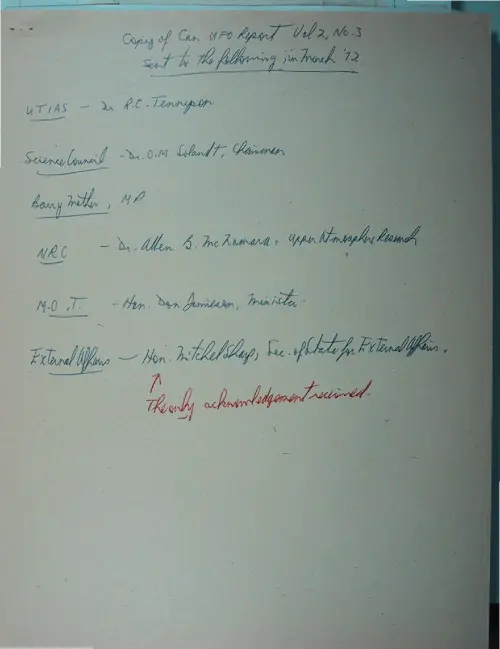 Copy of Can UFO Report Vol 2, No. 3
sent to the following, in March '72
UTIAS - Dr. R.C. Tennyson
Science Council - Dr. O.M Solandt, Chairman
Barry Mather, MP
NRC - Dr. Allen G. McNamara: Upper Atmosphere Research
M.O.T. - Hon. Don Jamieson, Minister.
External Affairs - Hon. Mitchel Sharp, Sec. of State for External Affairs.
↑
The only acknowledgement received.